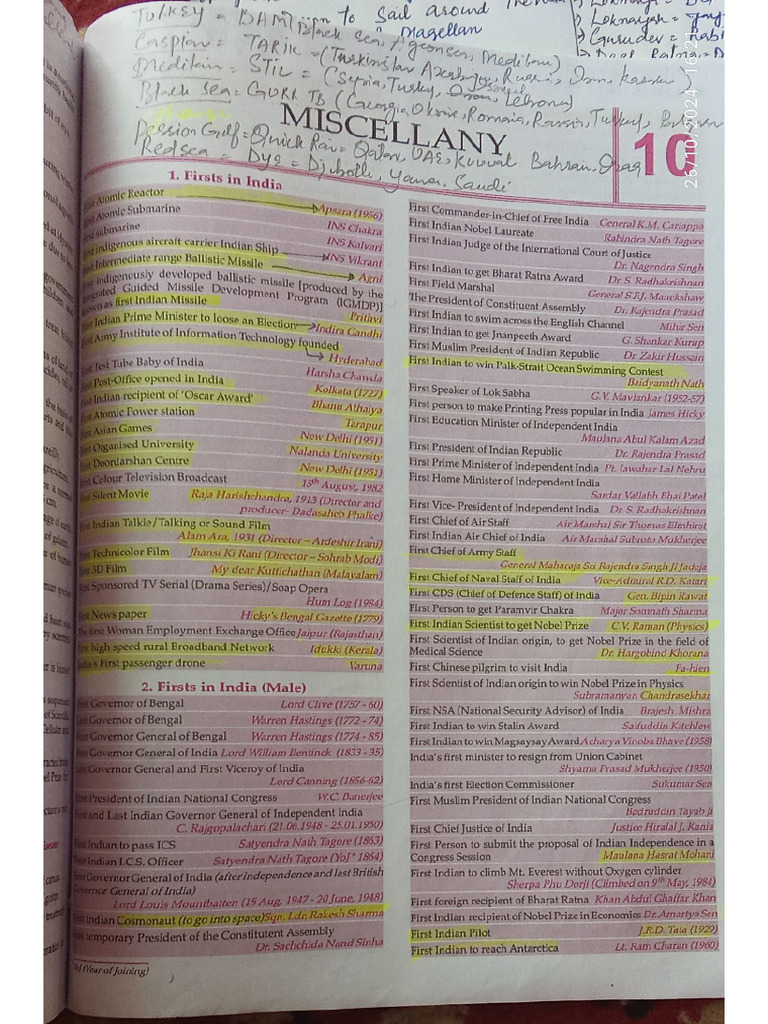 Turkey = BAMI
ign to Sail around
Magellan
Black sea, Ageonsea, Mediton)
Caspian = TARIK = (Turkinistan Azerbajan, Russia, Iran, Kazak)
= STIL = (Syria, Turkey, Lebrona)
Black Sea = GURR TB (Georgia, Ukraine, Romania, Russia, Turkey,
MISCELLANY
10
26/10/2024
Quick Rai = Qatar, UAE, Kuwait Bahrain, Iraq
Redsea = Dys = Djbotli, Saudi
1. Firsts in India
Atomic Reactor Apsara (1956)
Atomic Submarine INS Chakra
submarine INS Kalvari
indigenous aircraft carrier Indian Ship INS Vikrant
Intermediate range Ballistic Missile Agni
indigenously developed ballistic missile [produced by the
Guided Missile Development Program (IGMDP)]
known as first Indian Missile Prithvi
Indian Prime Minister to loose an Election Indira Gandhi
Army Institute of Information Technology founded
Hyderabad
Test Tube Baby of India Harsha Chawda
Post-Office opened in India Kolkata (1727)
Indian recipient of 'Oscar Award' Bhanu Athaiya
Atomic Power station Tarapur
Asian Games New Delhi (1951)
Organised University Nalanda University
Doordarshan Centre New Delhi (1951)
Colour Television Broadcast 15th August, 1982
Silent Movie Raja Harishchandra, 1913 (Director and
producer- Dadasaheb Phalke)
First Indian Talkie/Talking or Sound Film
Alam Ara, 1931 (Director – Ardeshir Irani)
Technicolor Film Jhansi Ki Rani (Director – Sohrab Modi)
3D Film My dear Kuttichathan (Malayalam)
First Sponsored TV Serial (Drama Series)/Soap Opera
Hum Log (1984)
News paper Hicky's Bengal Gazette (1779)
The first Woman Employment Exchange Office Jaipur (Rajasthan)
high speed rural Broadband Network Idukki (Kerala)
India's First passenger drone Varuna
2. Firsts in India (Male)
Governor of Bengal Lord Clive (1757 - 60)
Governor of Bengal Warren Hastings (1772 - 74)
Governor General of Bengal Warren Hastings (1774 - 85)
Governor General of India Lord William Bentinck (1833 - 35)
Governor General and First Viceroy of India
Lord Canning (1856-62)
President of Indian National Congress W.C. Banerjee
First and Last Indian Governor General of Independent India
C. Rajgopalachari (21.06.1948 - 25.01.1950)
Indian to pass ICS Satyendra Nath Tagore (1863)
Indian I.C.S. Officer Satyendra Nath Tagore (YoJ* 1864)
First Governor General of India (after independence and last British
Governor General of India)
Lord Louis Mountbatten (15 Aug, 1947 - 20 June, 1948)
First Indian Cosmonaut (to go into space) Sqn. Ldr. Rakesh Sharma
temporary President of the Constitutent Assembly
Dr. Sachchida Nand Sinha
(Year of Joining)
First Commander-in-Chief of Free India General K.M. Cariappa
First Indian Nobel Laureate Rabindra Nath Tagore
First Indian Judge of the International Court of Justice
Dr. Nagendra Singh
First Indian to get Bharat Ratna Award Dr. S. Radhakrishnan
First Field Marshal General S.F.J. Manekshaw
The President of Constituent Assembly Dr. Rajendra Prasad
First Indian to swim across the English Channel Mihir Sen
First Indian to get Jnanpeeth Award G. Shenkar Kurup
First Muslim President of Indian Republic Dr. Zakir Hussain
First Indian to win Palk-Strait Ocean Swimming Contest
Baidyanath Nath
First Speaker of Lok Sabha G.V. Mavlankar (1952-57)
First person to make Printing Press popular in India James Hicky
First Education Minister of Independent India
Maulana Abul Kalam Azad
First President of Indian Republic Dr. Rajendra Prasad
First Prime Minister of Independent India Pt. Jawahar Lal Nehru
First Home Minister of Independent India
Sardar Vallabh Bhai Patel
First Vice- President of Independent India Dr. S. Radhakrishnan
First Chief of Air Staff Air Marshal Sir Thomas Elmhirst
First Indian Air Chief of India Air Marshal Subroto Mukherjee
First Chief of Army Staff
General Maharaja Sri Rajendra Singh Ji Jadeja
First Chief of Naval Staff of India Vice-Admiral R.D. Katari
First CDS (Chief of Defence Staff) of India Gen. Bipin Rawat
First Person to get Paramvir Chakra Major Somnath Sharma
First Indian Scientist to get Nobel Prize C.V. Raman (Physics)
First Scientist of Indian origin, to get Nobel Prize in the field of
Medical Science Dr. Hargobind Khorana
First Chinese pilgrim to visit India Fa-hien
First Scientist of Indian origin to win Nobel Prize in Physics
Subramanyan Chandrasekhar
First NSA (National Security Advisor) of India Brajesh Mishra
First Indian to win Stalin Award Saifuddin Kitchlew
First Indian to win Magsaysay Award Acharya Vinoba Bhave (1958)
India's first minister to resign from Union Cabinet
Shyama Prasad Mukherjee (1950)
India's first Election Commissioner Sukumar Sen
First Muslim President of Indian National Congress
Badruddin Tayab Ji
First Chief Justice of India Justice Hiralal J. Kania
First Person to submit the proposal of Indian Independence in a
Congress Session Maulana Hasrat Mohani
First Indian to climb Mt. Everest without Oxygen cylinder
Sherpa Phu Dorji (Climbed on 9th May, 1984)
First foreign recipient of Bharat Ratna Khan Abdul Ghaffar Khan
First Indian recipient of Nobel Prize in Economics Dr. Amartya Sen
First Indian Pilot J.R.D. Tata (1929)
First Indian to reach Antarctica Lt. Ram Charan (1960)